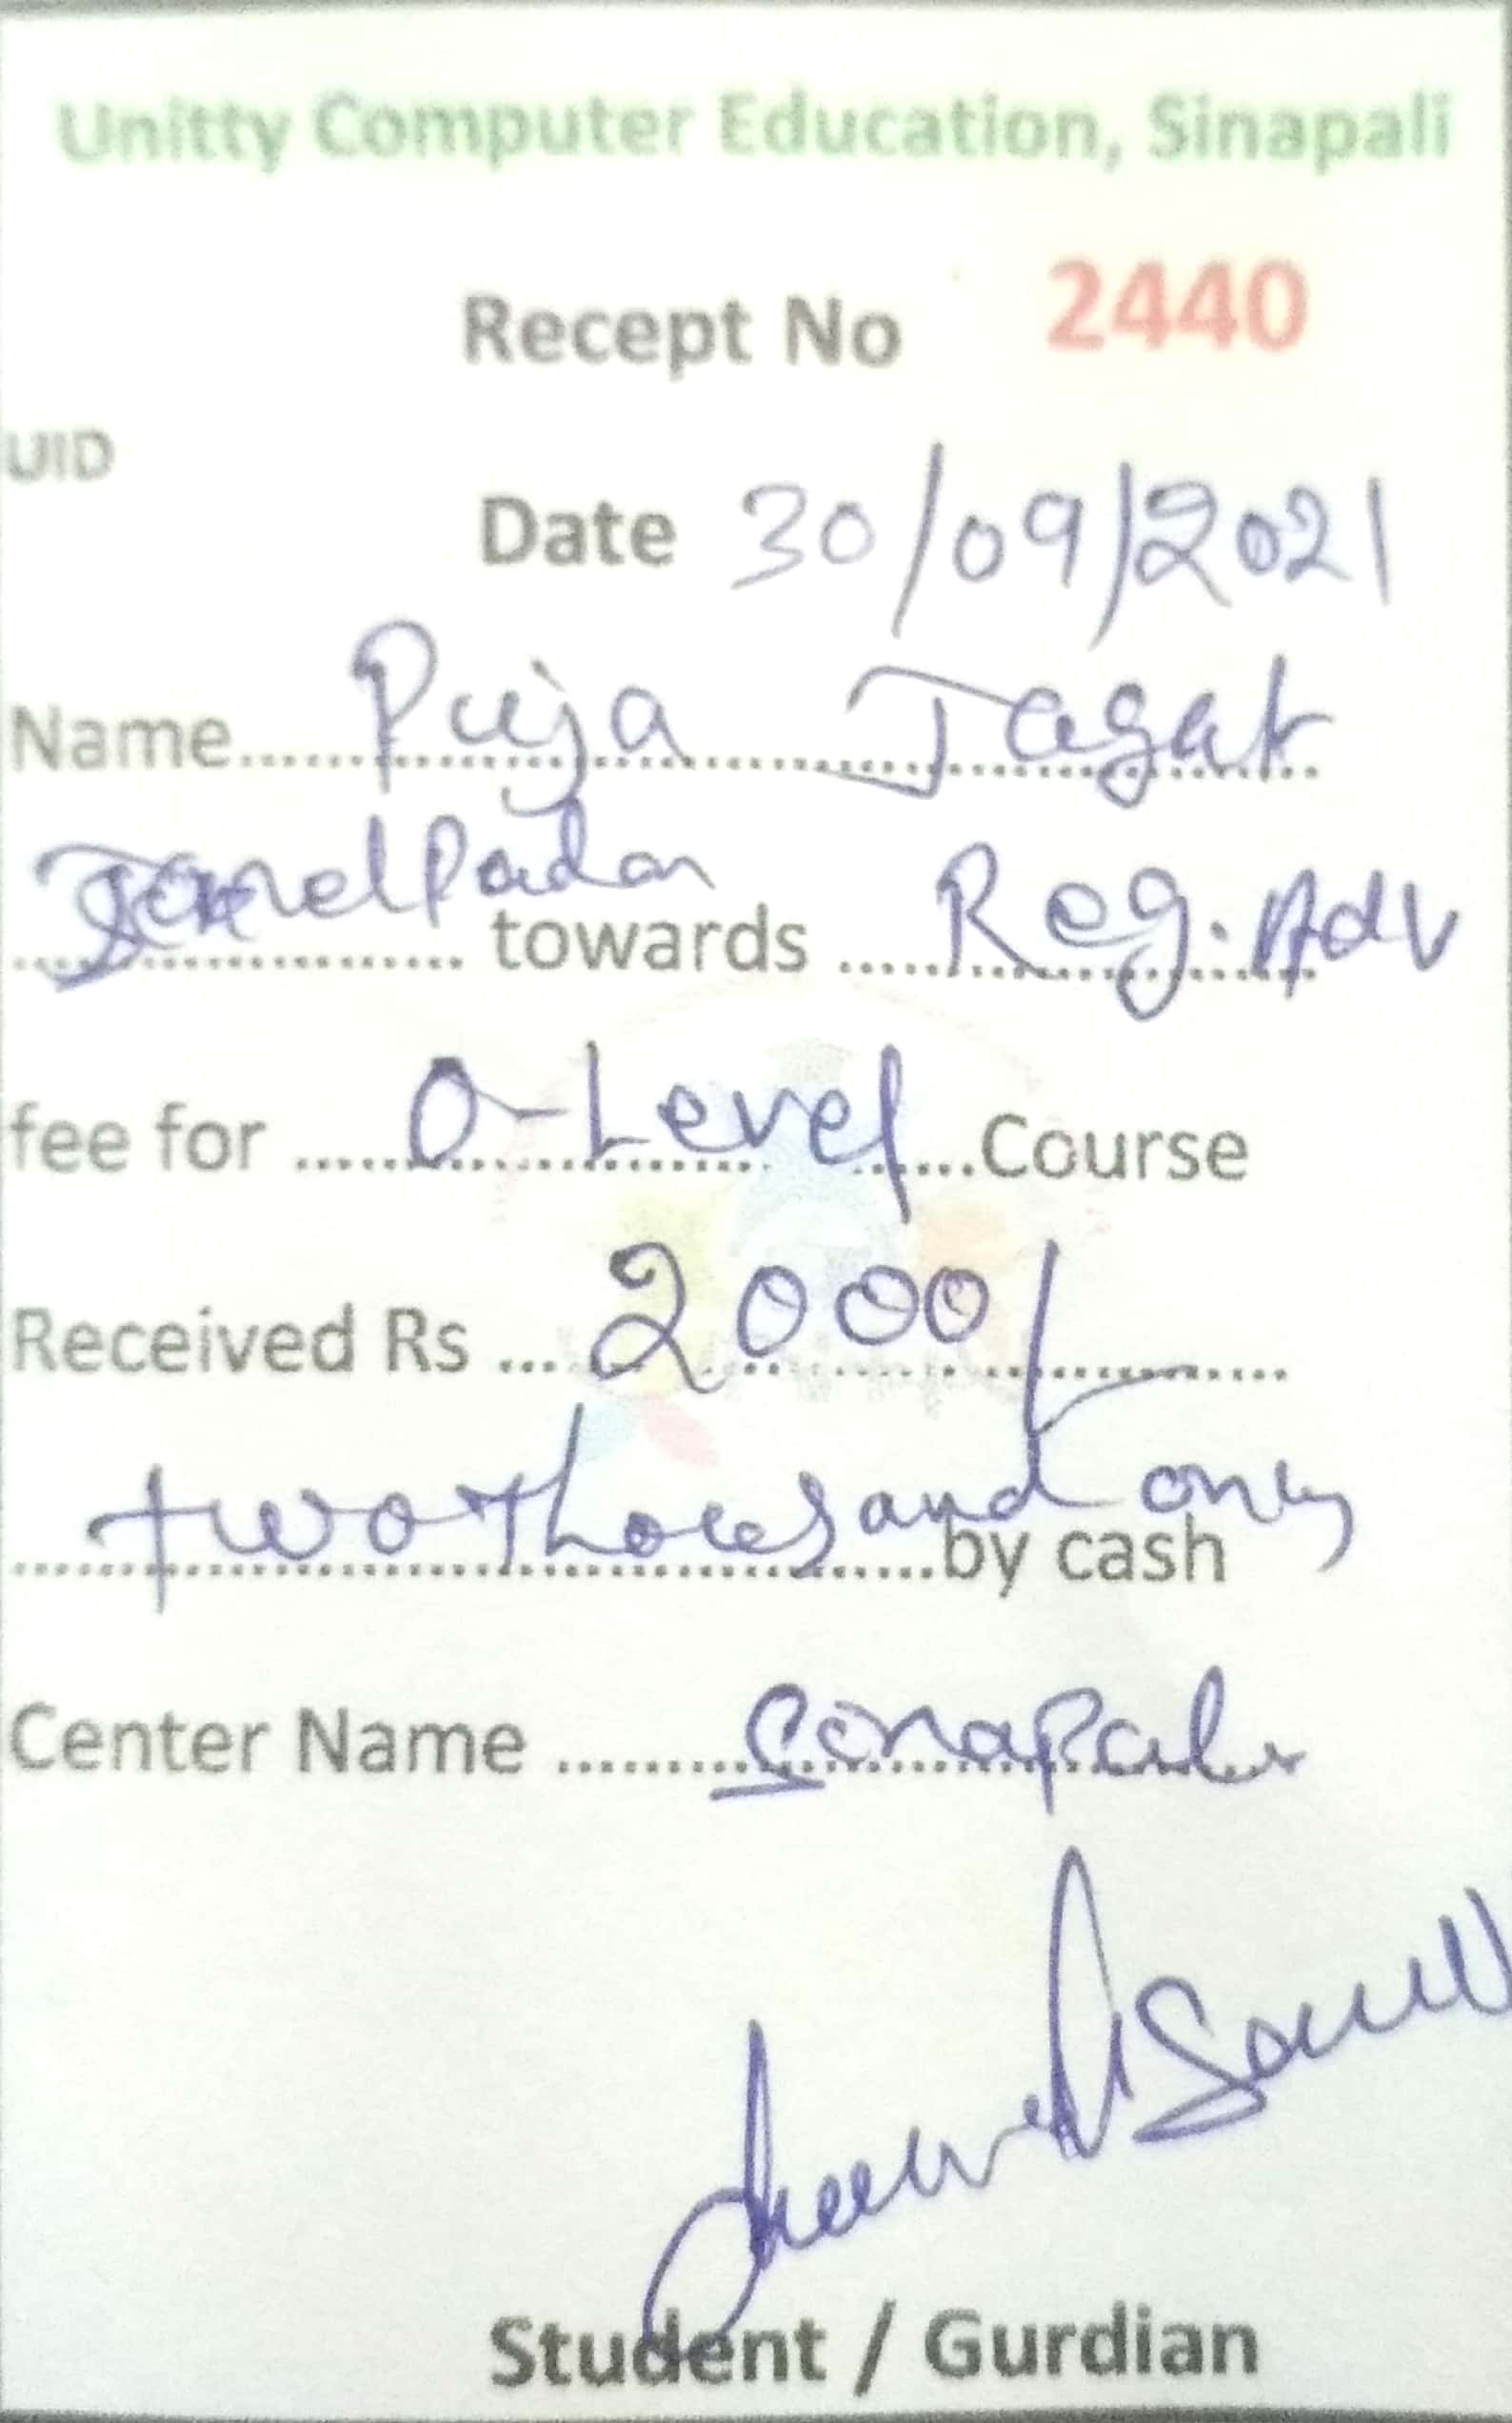 Unitty Computer Education, Sinapali
Recept No 2440
UID
Date 30/09/2021
Name Puja Jagat
towards Reg. Adv
fee for O-Level Course
Received Rs 2000/
two thousand only
by cash
Center Name Sinapali
Student / Gurdian